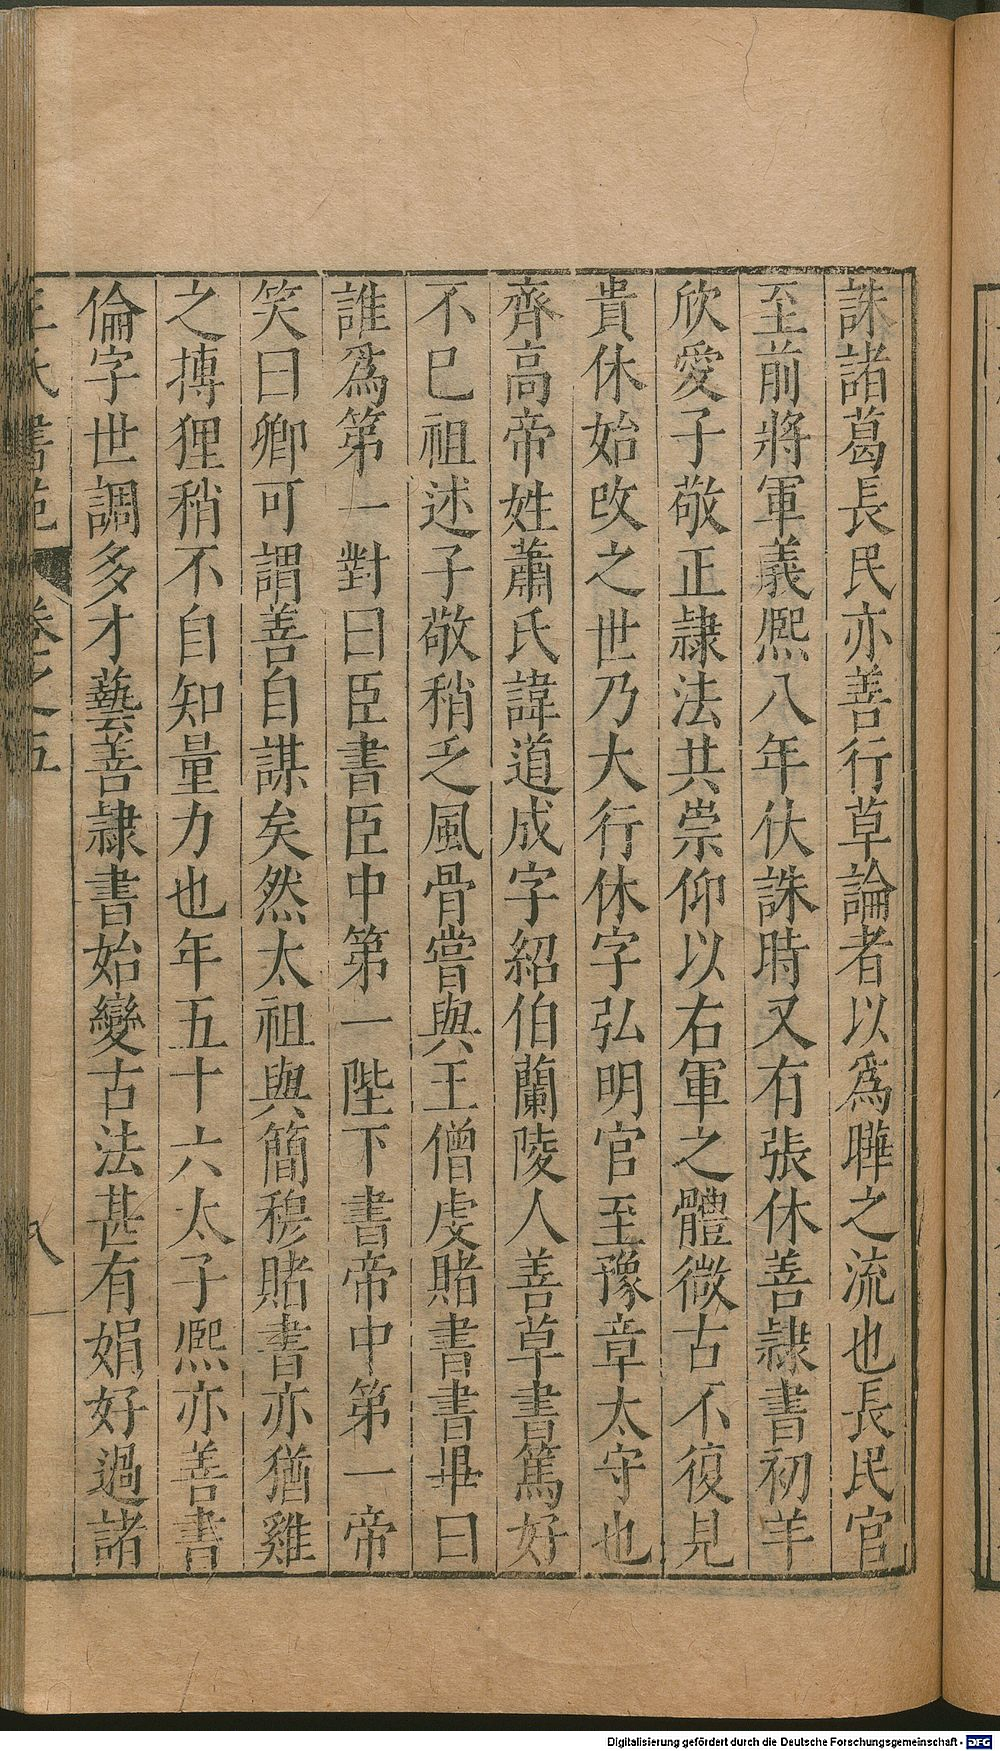 誅諸葛長民亦善行草論者以爲曄之流也長民官
至前將軍義熈八年伏誅時又有張休善隷書初羊
欣愛子敬正隷法共崇仰以右軍之體微古不復見
貴休始改之世乃大行休字弘明官至豫章太守也
齊高帝姓蕭氏諱道成字紹伯蘭陵人善草書篤好
不已祖述子敬稍乏風骨嘗與王僧虔賭書書畢曰
誰爲第一對曰臣書臣中第一陛下書帝中第一帝
笑曰卿可謂善自謀矣然太祖與簡穆賭書亦猶雞
之搏狸稍不自知量力也年五十六太子熈亦善書
倫字世調多才藝善隷書始變古法甚有娟好過諸
王氏書苑 卷之五 八
Digitalisierung gefördert durch die Deutsche Forschungsgemeinschaft - DFG